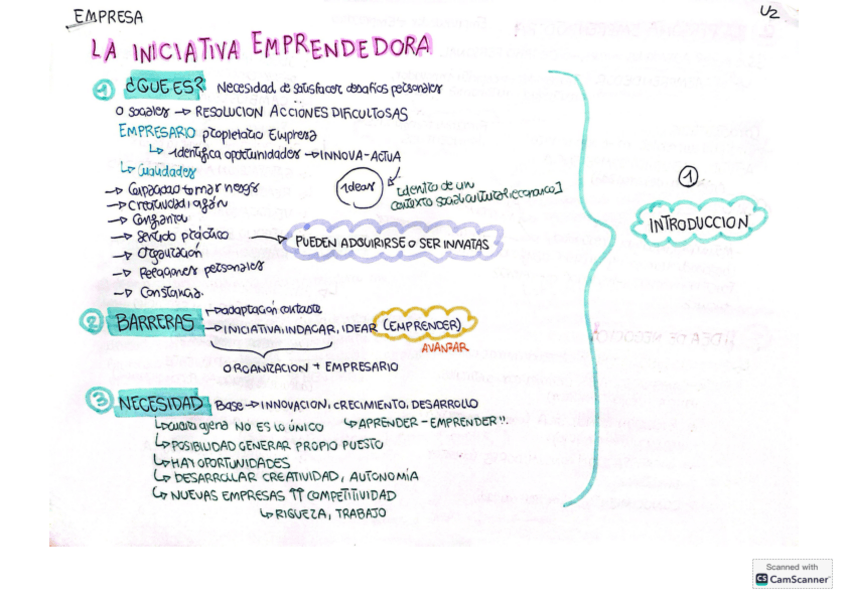 EMPRESA
U2
LA INICIATIVA EMPRENDEDORA
① ¿QUE ES? Necesidad de satisfacer desafíos personales
o sociales → RESOLUCION ACCIONES DIFICULTOSAS
EMPRESARIO propietario Empresa
↳ Identifica oportunidades → INNOVA-ACTUA
↳ Cualidades
Ideas [dentro de un
contexto social, cultural, económico]
→ Capacidad tomar riesgs
→ Creatividad, afán
→ Confianza
→ Sentido práctico → PUEDEN ADQUIRIRSE O SER INNATAS
→ Organización
→ Relaciones personales
→ Constancia.
① INTRODUCCION
② BARRERAS → adaptación contaste
→ INICIATIVA: INDAGAR, IDEAR (EMPRENDER)
AVANZAR
ORGANIZACION + EMPRESARIO
③ NECESIDAD Base → INNOVACION, CRECIMIENTO, DESARROLLO
↳ cuenta ajena NO ES LO ÚNICO ↳ APRENDER - EMPRENDER"
↳ POSIBILIDAD GENERAR PROPIO PUESTO
↳ HAY OPORTUNIDADES
↳ DESARROLLAR CREATIVIDAD, AUTONOMÍA
↳ NUEVAS EMPRESAS ⇈ COMPETITIVIDAD
↳ RIQUEZA, TRABAJO
Scanned with
CS CamScanner